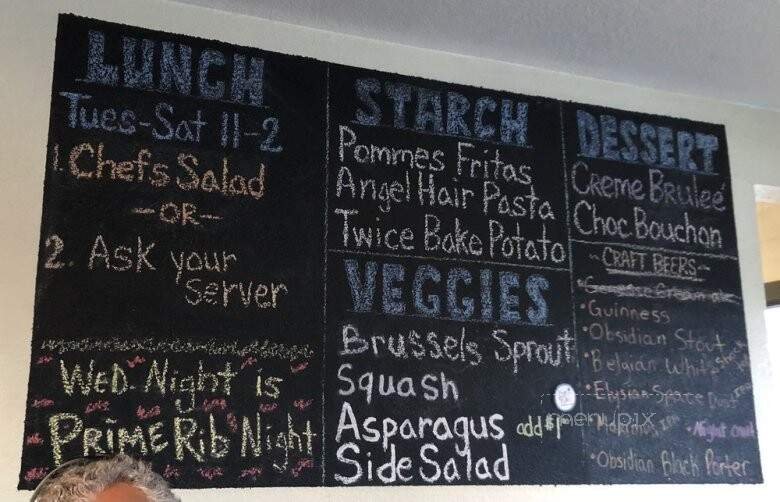 LUNCH
Tues-Sat 11-2
1. Chefs Salad
-OR-
2. Ask your
server
WED. Night is
PRIME Rib Night
STARCH
Pommes Fritas
Angel Hair Pasta
Twice Bake Potato
VEGGIES
Brussels Sprout
Squash
Asparagus add $1
Side Salad
DESSERT
Creme Bruleé
Choc Bouchon
~CRAFT BEERS~
•Guinness
•Obsidian Stout
•Belgian White
•Elysian Space Dust
menupix
•Obsidian Black Porter